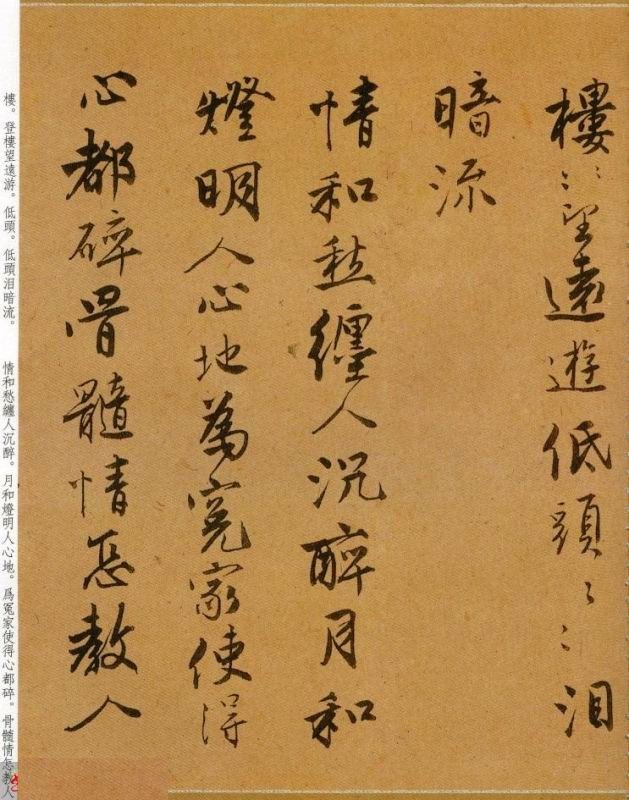 樓〻望遠遊低頭〻〻淚
暗流
情和愁纏人沉醉月和
燈明人心地為冤家使得
心都碎骨髓情怎教人
樓。登樓望遠游。低頭。低頭泪暗流。　情和愁纏人沉醉。月和燈明人心地。爲冤家使得心都碎。骨髓情怎教人